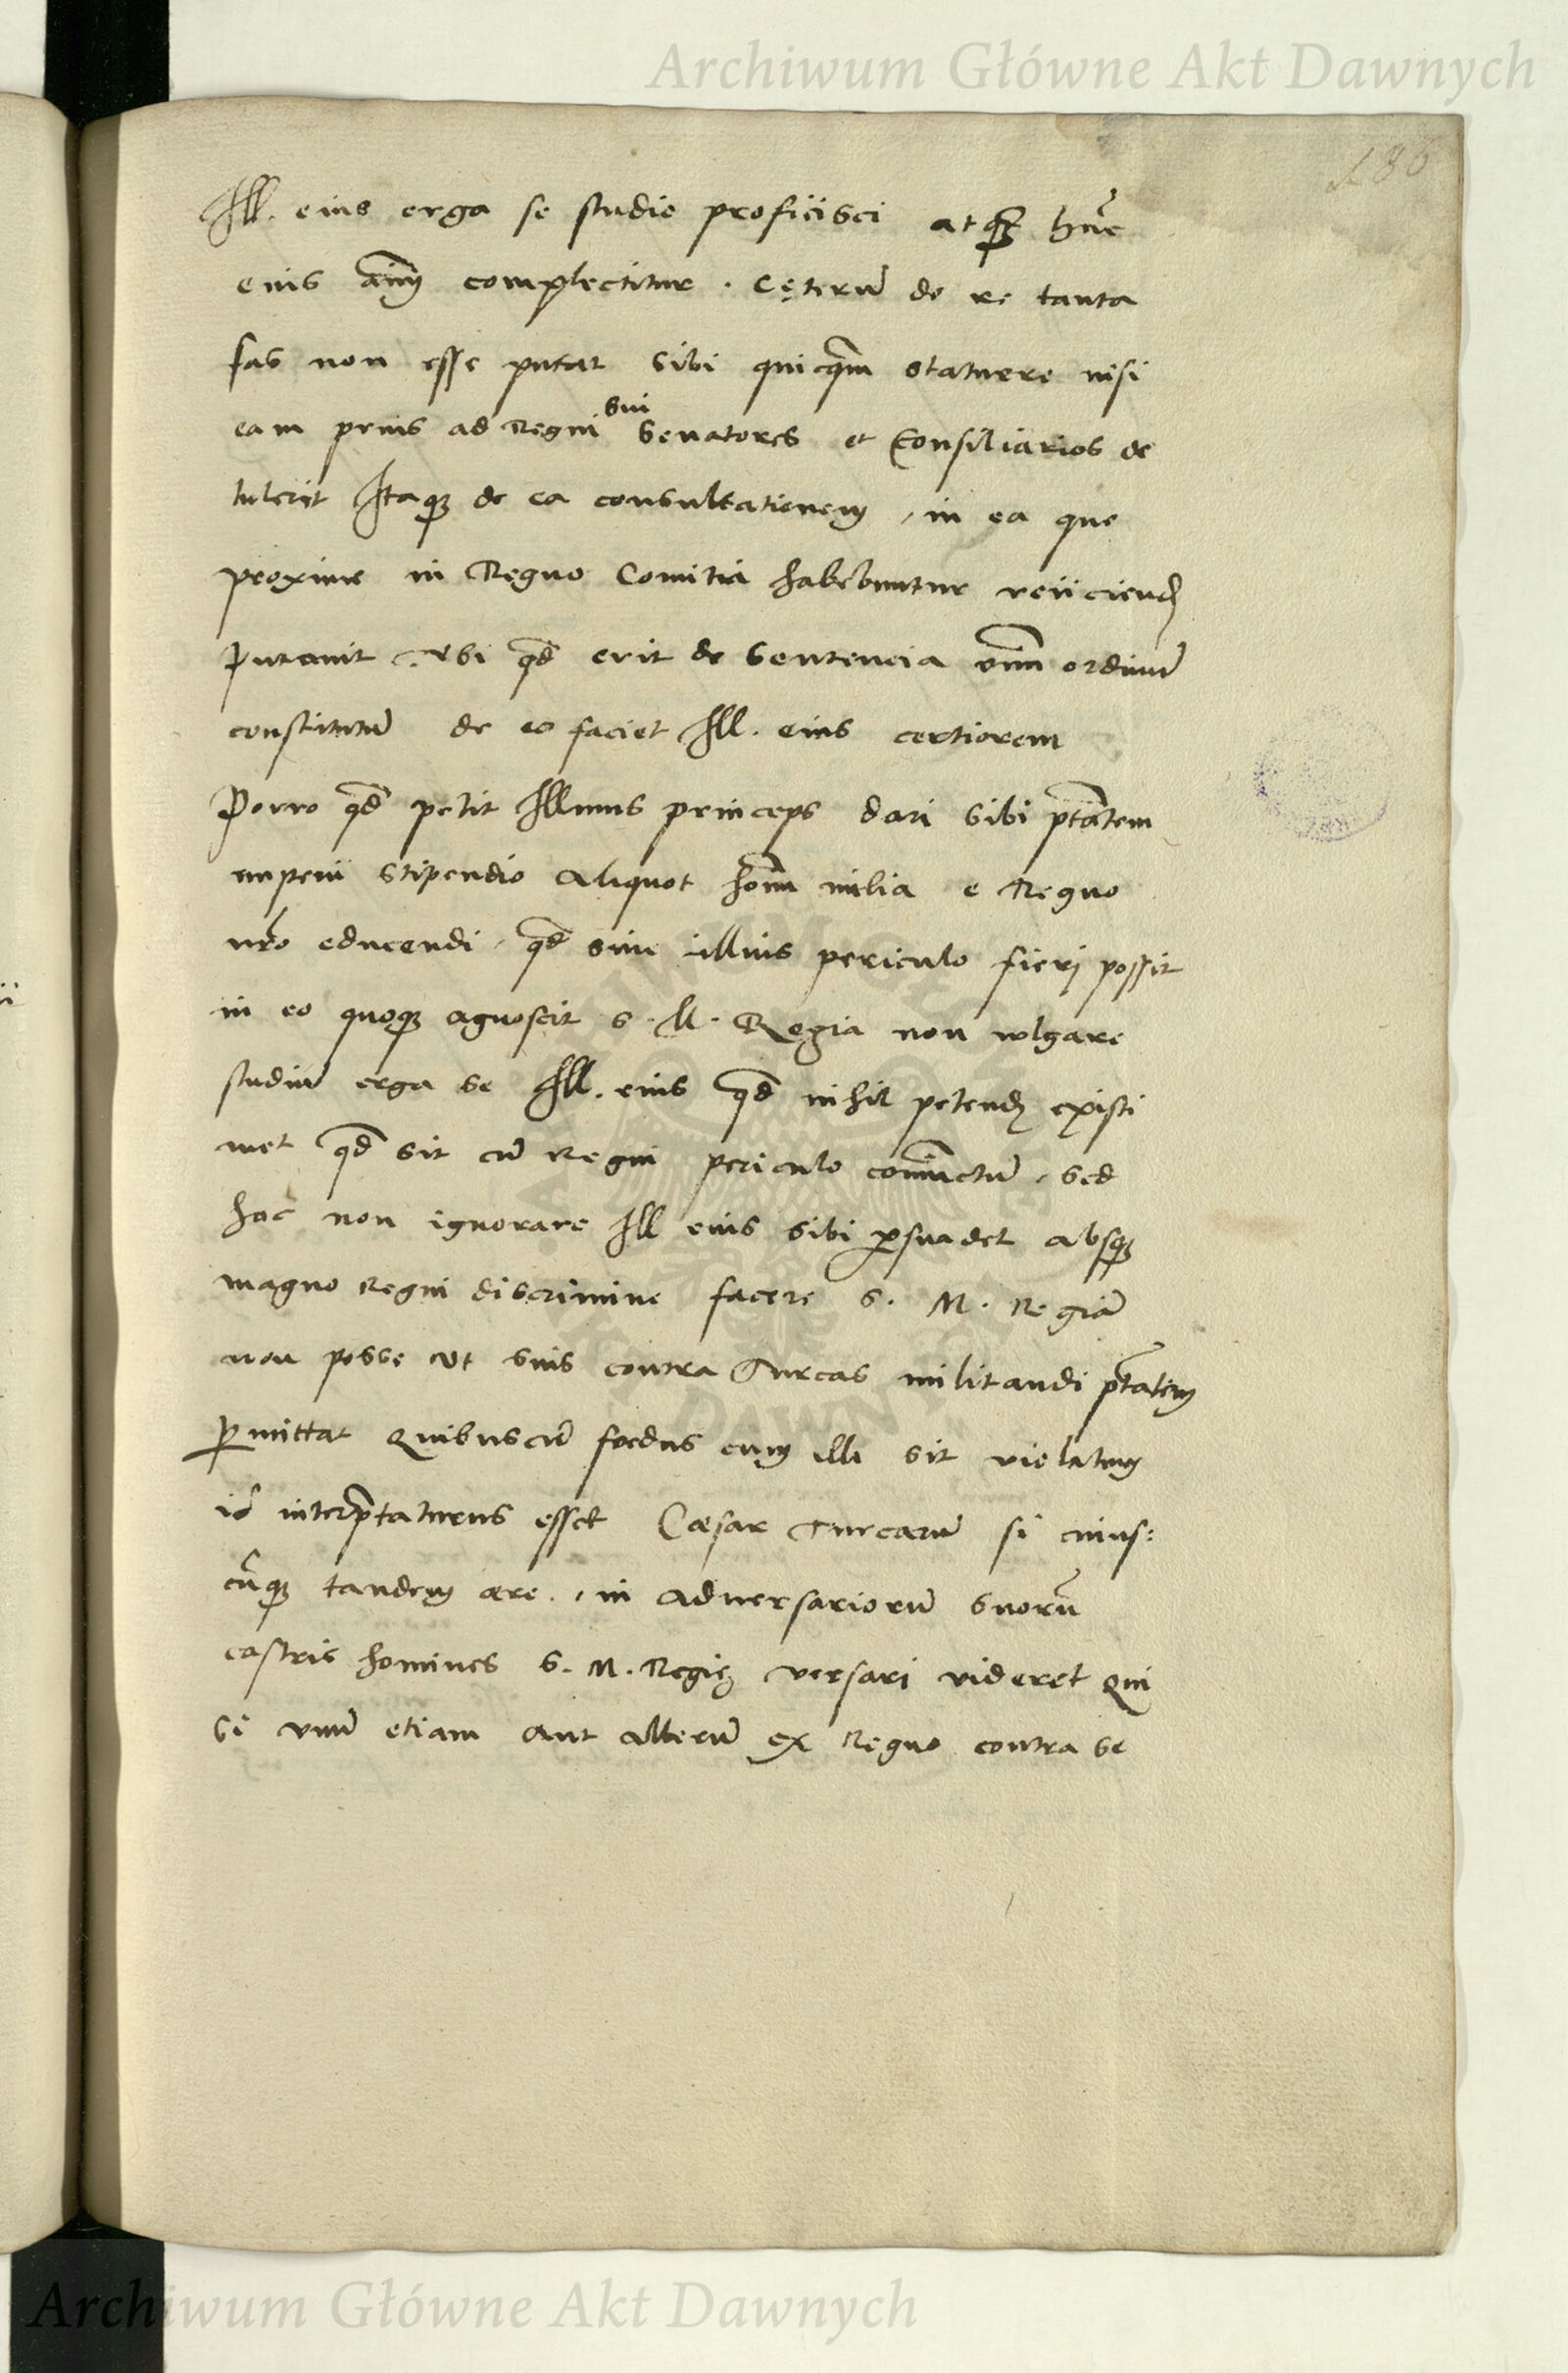 Archiwum Główne Akt Dawnych
186
Ill. eius erga se studio proficisci atq₃ hūc
eius aīm complectitur . Cęterū de re tanta
fas non esse putat sibi quicq̄m statuere nisi
sui
eam prius ad Regni Senatores et Consiliarios de
tulerit Itaq₃ de ea consultationem , in ea que
proxime in Regno Comitia habebuntur reiiciend
putauit Vbi qd̄ erit de Sentencia om̄m ordinū
constitutū de eo faciet Ill. eius certiorem
Porro qd̄ petit Illmus princeps dari sibi ptātem
stipendio aliquot hom̄ milia e Regno
nr̄o educendi , qd̄ sine illius periculo fieri possit
in eo quoq₃ agnoscit S. M. Regia non wlgare
studiū erga se Ill. eius qd̄ nihil petend existi
met qd̄ sit cū Regni periculo coniūctū , sed
hoc non ignorare Ill eius sibi ꝑsuadet absq₃
magno Regni discrimine facere S. M. Regiā
non posse ut suis contra Turcas militandi ptātem
ꝑmittat Quibuscū foedus cum illi sit violatum
id interp̄taturus esset Cæsar Turcarū si cuius:
cūq₃ tandem ære , in aduersariorū suorū
castris homines S. M. Regię versari videret Qui
si vnū etiam aut alterū ex Regno contra se
Archiwum Główne Akt Dawnych